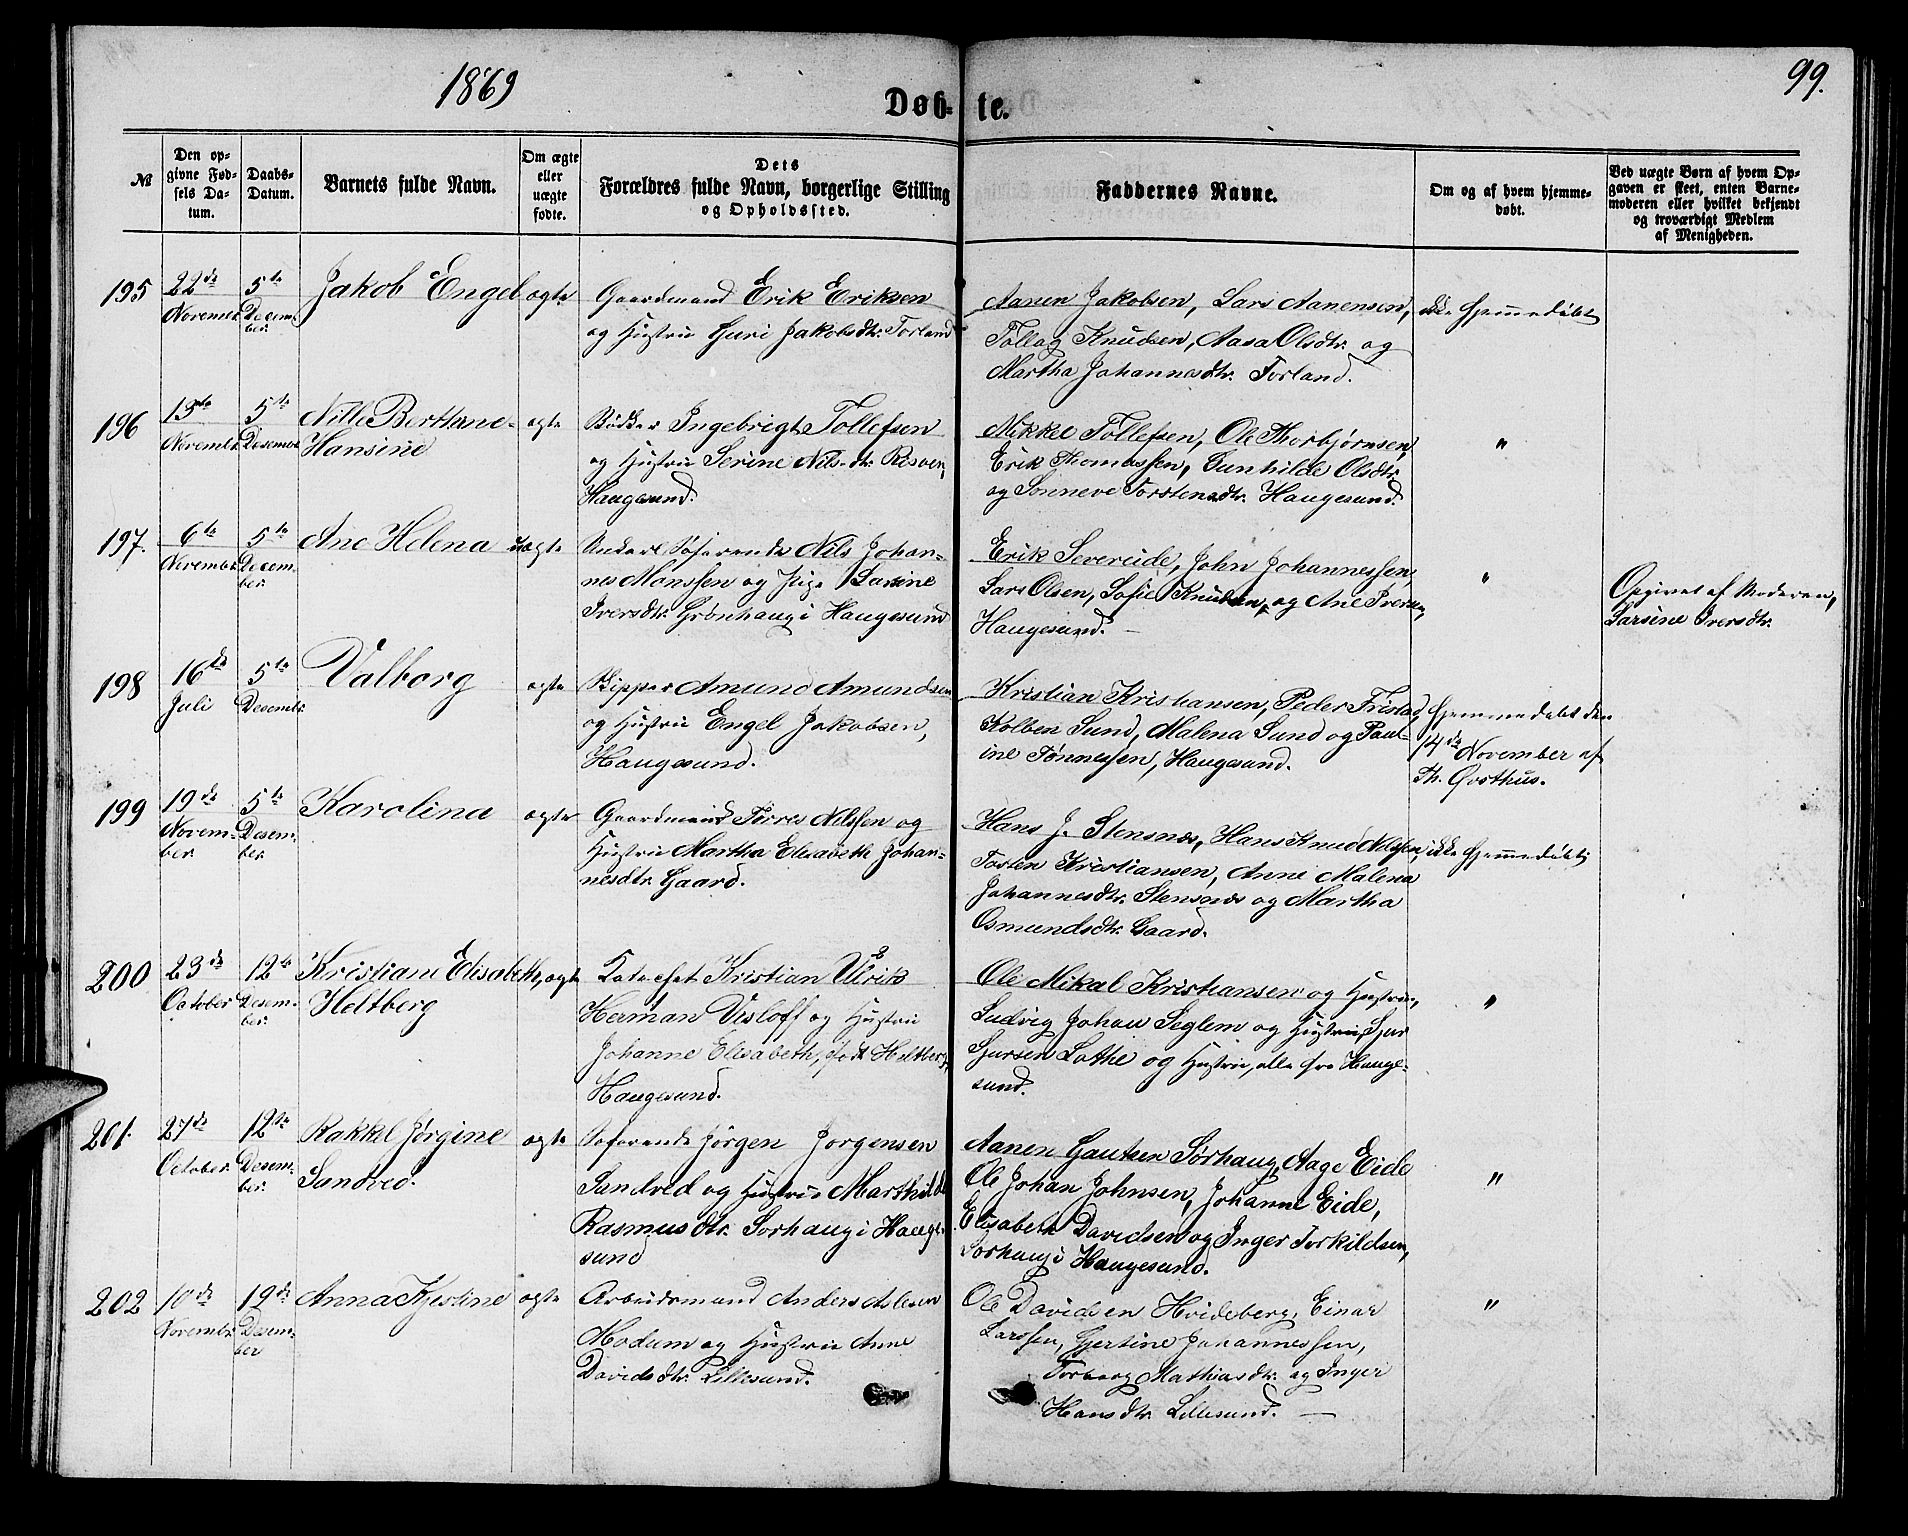 1869
99.
Døb-te.
№
Den op-
givne Fød-
sels Da-
tum.
Daabs-
Datum.
Barnets fulde Navn.
Om ægte
eller
uægte
fødte.
Dets
Forældres fulde Navn, borgerlige Stilling
og Opholdssted.
Faddernes Navne.
Om og af hvem hjemme-
døbt.
Ved uægte Børn af hvem Op-
gaven er skeet, enten Barne-
moderen eller hvilket bekjendt
og troværdigt Medlem
af Menigheden.
195
22de
November
5te
Decem-
ber.
Jakob Engel
ægte
Gaardmand Erik Eriksen
og Hustru Guri Jakobsdtr. Torland
Aanen Jakobsen, Lars Aanensen,
Tollag Knudsen, Aasa Olsdtr. og
Martha Johannesdtr. Torland.
ikke hjemmedøbt
196
13te
Novembr.
5te
Desembr.
Nille Berthane
Hansine
ægte
Bødker Ingebrigt Tollefsen
og Hustru Serine Nils-dtr. Risøen,
Haugesund.
Mikkel Tollefsen, Ole Thorbjørnsen,
Erik Thomassen, Gunhilde Olsdtr.
og Sønneve Torstensdtr. Haugesund.
"
197.
6te
Novembr.
5te
Decem-
ber.
Ane Helena
uægte
Ankarl Søfarende Nils Johan-
nes Monssen og Pige Larsine
Iversdtr. Grønhaug i Haugesund
Erik Severeide, John Johannessen,
Lars Olsen, Sofie Knudsen, og Ane Iversen,
Haugesund. —
"
Opgivet af Moderen,
Larsine Iversdtr.
198
16de
Juli
5te
Desembr.
Valborg
ægte
Skipper Amund Amundsen
og Hustru Engel Jakobsen,
Haugesund.
Kristian Kristiansen, Peder Fristad,
Kolben Sund, Malena Sund og Paul-
ine Tønnessen, Haugesund.
hjemmedøbt den
14de November af
Th. Østhus.
199
19de
Novem-
ber.
5te
Desem-
ber.
Karolina
ægte
Gaardmand Torres Nilssen og
Hustru Martha Elisabeth Johan-
nesdtr. Gaard.
Hans J. Stensnæs, Hans Knud Nilssen,
Torsten Kristiansen, Anne Malena
Johannesdtr. Stensnæs og Martha
Osmundsdtr. Gaard.
ikke hjemmedøbt
200
23de
October
12te
Desem-
ber.
Kristiane Elisabeth,
Heltberg
ægte
Kateket Kristian Ulrik
Herman Visløff og Hustru
Johanne Elisabeth, født Heltberg,
Haugesund.
Ole Mikal Kristiansen og Hustru,
Ludvig Johan Seglem og Hustru, Sjur
Sjursen Lothe og Hustru, alle fra Hauge-
sund.
"
201.
27de
October.
12te
Desem-
ber.
Rakkel Jørgine
Sandved.
ægte
Søfarende Jørgen Jørgensen
Sandved og Hustru Marthilde
Rasmusdtr. Sørhaug i Hauge-
sund
Aanen Gautsen Sørhaug, Aage Eide
Ole Johan Johnsen, Johanne Eide,
Elisabeth Davidsen og Inger Torkildsen,
Sørhaug i Haugesund.
"
202
10de
Novembr.
19de
Desem-
ber
Anna Kjestine
ægte
Arbeidsmand Anders Aslesen
Modum og Hustru Anne
Davidsdtr. Lillesund.
Ole Davidsen Hvideberg, Einar
Larssen, Gjertine Johannessen,
Torborg Mathiasdtr. og Inger
Hansdtr. Lillesund. —
"